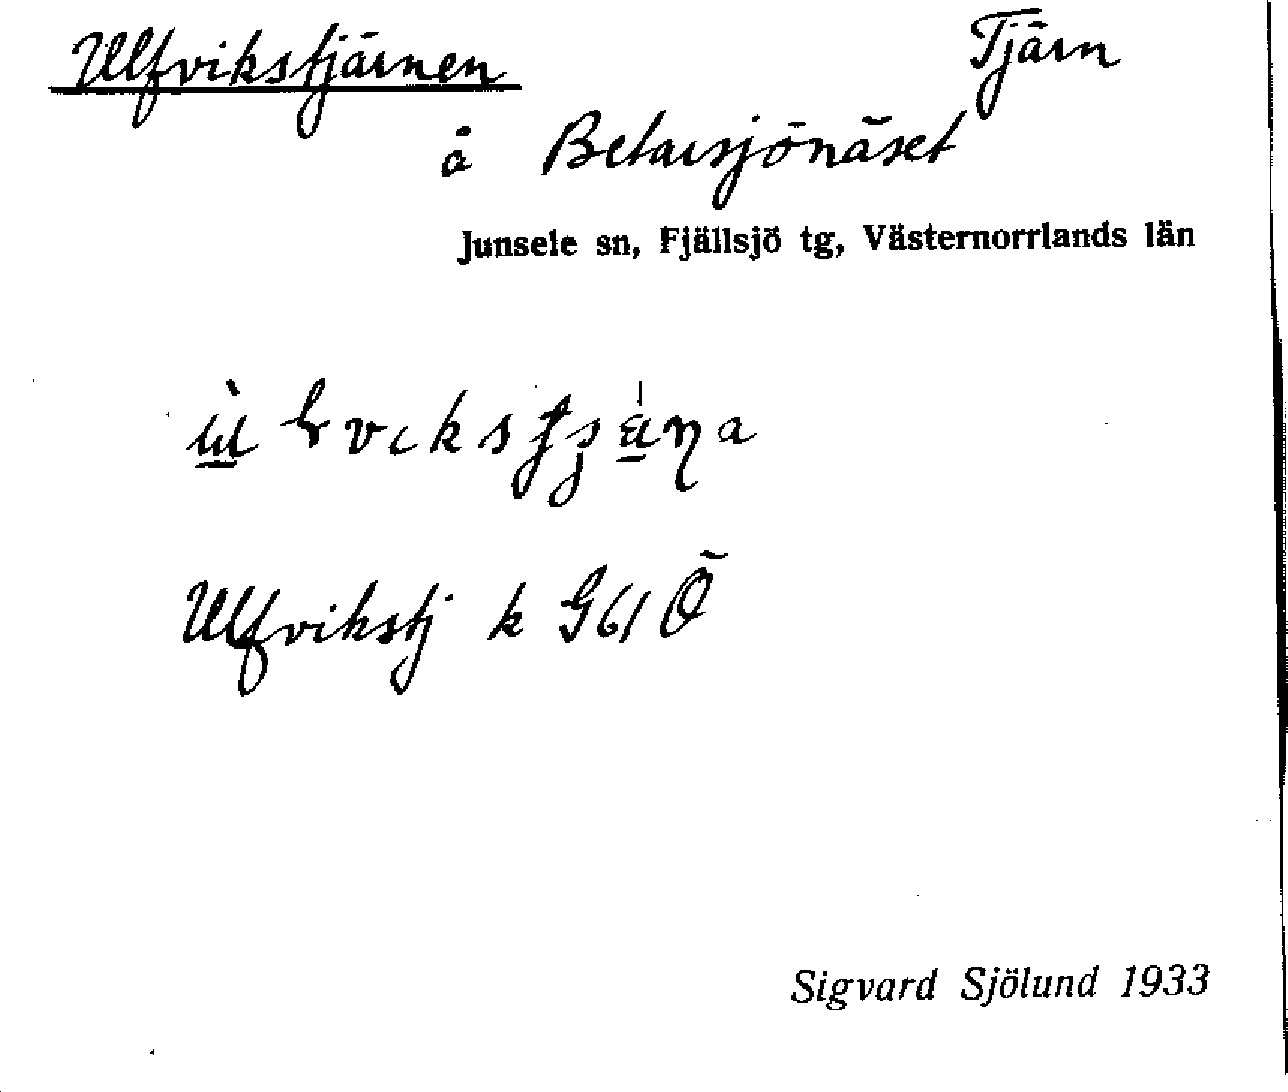 Ulfvikstjärnen Tjärn
å Betarsjönäset
Junsele sn, Fjällsjö tg, Västernorrlands län
Ulfvikstj k G61 Ö
Sigvard Sjölund 1933